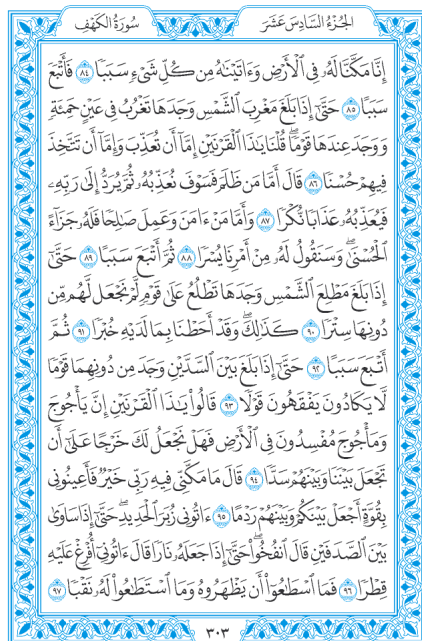 الجُزْءُ السَّادِسَ عَشَرَ
سُورَةُ الكَهْفِ
إِنَّا مَكَّنَّا لَهُۥ فِي ٱلْأَرْضِ وَءَاتَيْنَٰهُ مِن كُلِّ شَيْءٍ سَبَبًا ٨٤ فَأَتْبَعَ
سَبَبًا ٨٥ حَتَّىٰٓ إِذَا بَلَغَ مَغْرِبَ ٱلشَّمْسِ وَجَدَهَا تَغْرُبُ فِي عَيْنٍ حَمِئَةٍ
وَوَجَدَ عِندَهَا قَوْمًاۖ قُلْنَا يَٰذَا ٱلْقَرْنَيْنِ إِمَّآ أَن تُعَذِّبَ وَإِمَّآ أَن تَتَّخِذَ
فِيهِمْ حُسْنًا ٨٦ قَالَ أَمَّا مَن ظَلَمَ فَسَوْفَ نُعَذِّبُهُۥ ثُمَّ يُرَدُّ إِلَىٰ رَبِّهِۦ
فَيُعَذِّبُهُۥ عَذَابًا نُّكْرًا ٨٧ وَأَمَّا مَنْ ءَامَنَ وَعَمِلَ صَٰلِحًا فَلَهُۥ جَزَآءً
ٱلْحُسْنَىٰۖ وَسَنَقُولُ لَهُۥ مِنْ أَمْرِنَا يُسْرًا ٨٨ ثُمَّ أَتْبَعَ سَبَبًا ٨٩ حَتَّىٰٓ
إِذَا بَلَغَ مَطْلِعَ ٱلشَّمْسِ وَجَدَهَا تَطْلُعُ عَلَىٰ قَوْمٍ لَّمْ نَجْعَل لَّهُم مِّن
دُونِهَا سِتْرًا ٩٠ كَذَٰلِكَۖ وَقَدْ أَحَطْنَا بِمَا لَدَيْهِ خُبْرًا ٩١ ثُمَّ
أَتْبَعَ سَبَبًا ٩٢ حَتَّىٰٓ إِذَا بَلَغَ بَيْنَ ٱلسَّدَّيْنِ وَجَدَ مِن دُونِهِمَا قَوْمًا
لَّا يَكَادُونَ يَفْقَهُونَ قَوْلًا ٩٣ قَالُوا۟ يَٰذَا ٱلْقَرْنَيْنِ إِنَّ يَأْجُوجَ
وَمَأْجُوجَ مُفْسِدُونَ فِي ٱلْأَرْضِ فَهَلْ نَجْعَلُ لَكَ خَرْجًا عَلَىٰٓ أَن
تَجْعَلَ بَيْنَنَا وَبَيْنَهُمْ سَدًّا ٩٤ قَالَ مَا مَكَّنِّي فِيهِ رَبِّي خَيْرٌ فَأَعِينُونِي
بِقُوَّةٍ أَجْعَلْ بَيْنَكُمْ وَبَيْنَهُمْ رَدْمًا ٩٥ ءَاتُونِي زُبَرَ ٱلْحَدِيدِۖ حَتَّىٰٓ إِذَا سَاوَىٰ
بَيْنَ ٱلصَّدَفَيْنِ قَالَ ٱنفُخُوا۟ۖ حَتَّىٰٓ إِذَا جَعَلَهُۥ نَارًا قَالَ ءَاتُونِيٓ أُفْرِغْ عَلَيْهِ
قِطْرًا ٩٦ فَمَا ٱسْطَٰعُوٓا۟ أَن يَظْهَرُوهُ وَمَا ٱسْتَطَٰعُوا۟ لَهُۥ نَقْبًا ٩٧
٣٠٣